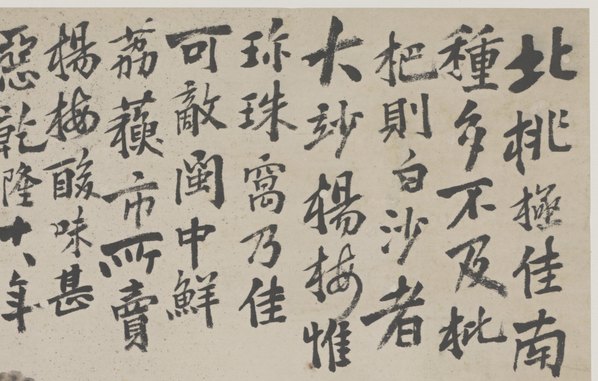 北桃極佳南
種多不及枇
杷則白沙者
大妙楊梅惟
珎珠窩乃佳
可敵閩中鮮
荔蘋市所賣
楊梅酸味甚
惡乾隆十八年